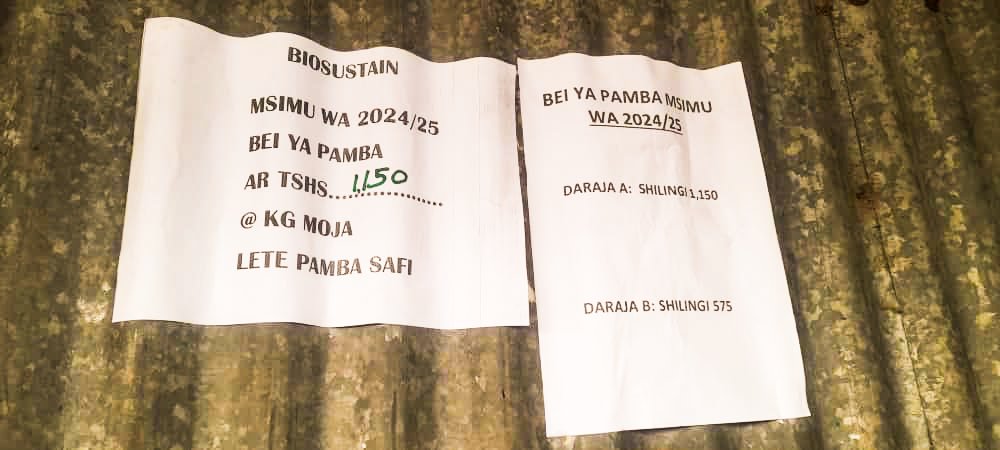 BIOSUSTAIN
MSIMU WA 2024/25
BEI YA PAMBA
AR TSHS....1,150..........
@ KG MOJA
LETE PAMBA SAFI
BEI YA PAMBA MSIMU
WA 2024/25
DARAJA A: SHILINGI 1,150
DARAJA B: SHILINGI 575